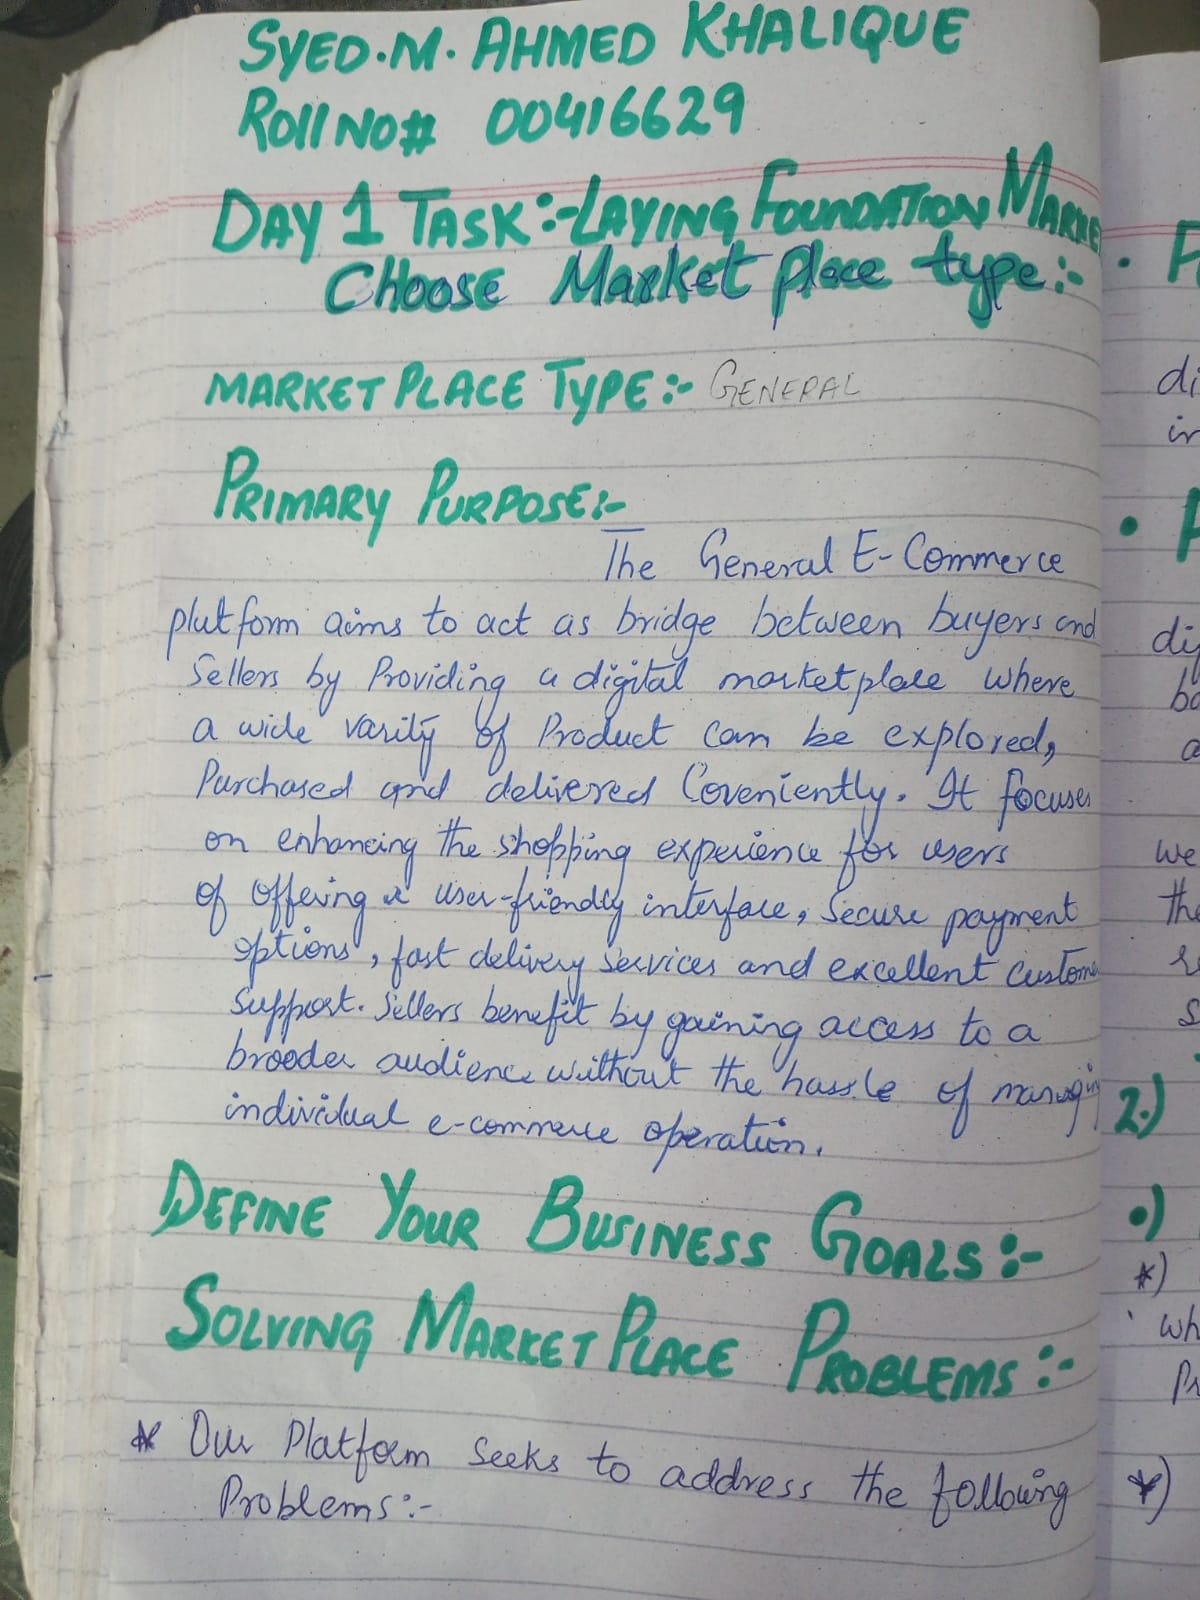 SYED.M. AHMED KHALIQUE
Roll NO# 00416629
DAY 1 TASK:-LAYING FOUNDATION MARKE
CHOOSE Market place type:-
MARKET PLACE TYPE:- GENERAL
PRIMARY PURPOSE:-
The General E-Commerce
platform aims to act as bridge between buyers and
Sellers by Providing a digital marketplace where
a wide varity of Product can be explored,
Purchased and delivered Coveniently. It focuses
on enhancing the shopping experience for users
of offering a user-friendly interface, Secure payment
options, fast delivery services and excellent custome
support. Sellers benefit by gaining access to a
broader audience without the hassle of managing
individual e-commerce operation.
DEFINE YOUR BUSINESS GOALS:-
SOLVING MARKET PLACE PROBLEMS:-
* Our Platform Seeks to address the following
Problems:-
di
in
di
bo
a
we
the
s
2.)
•)
*)
wh
Pr
*)